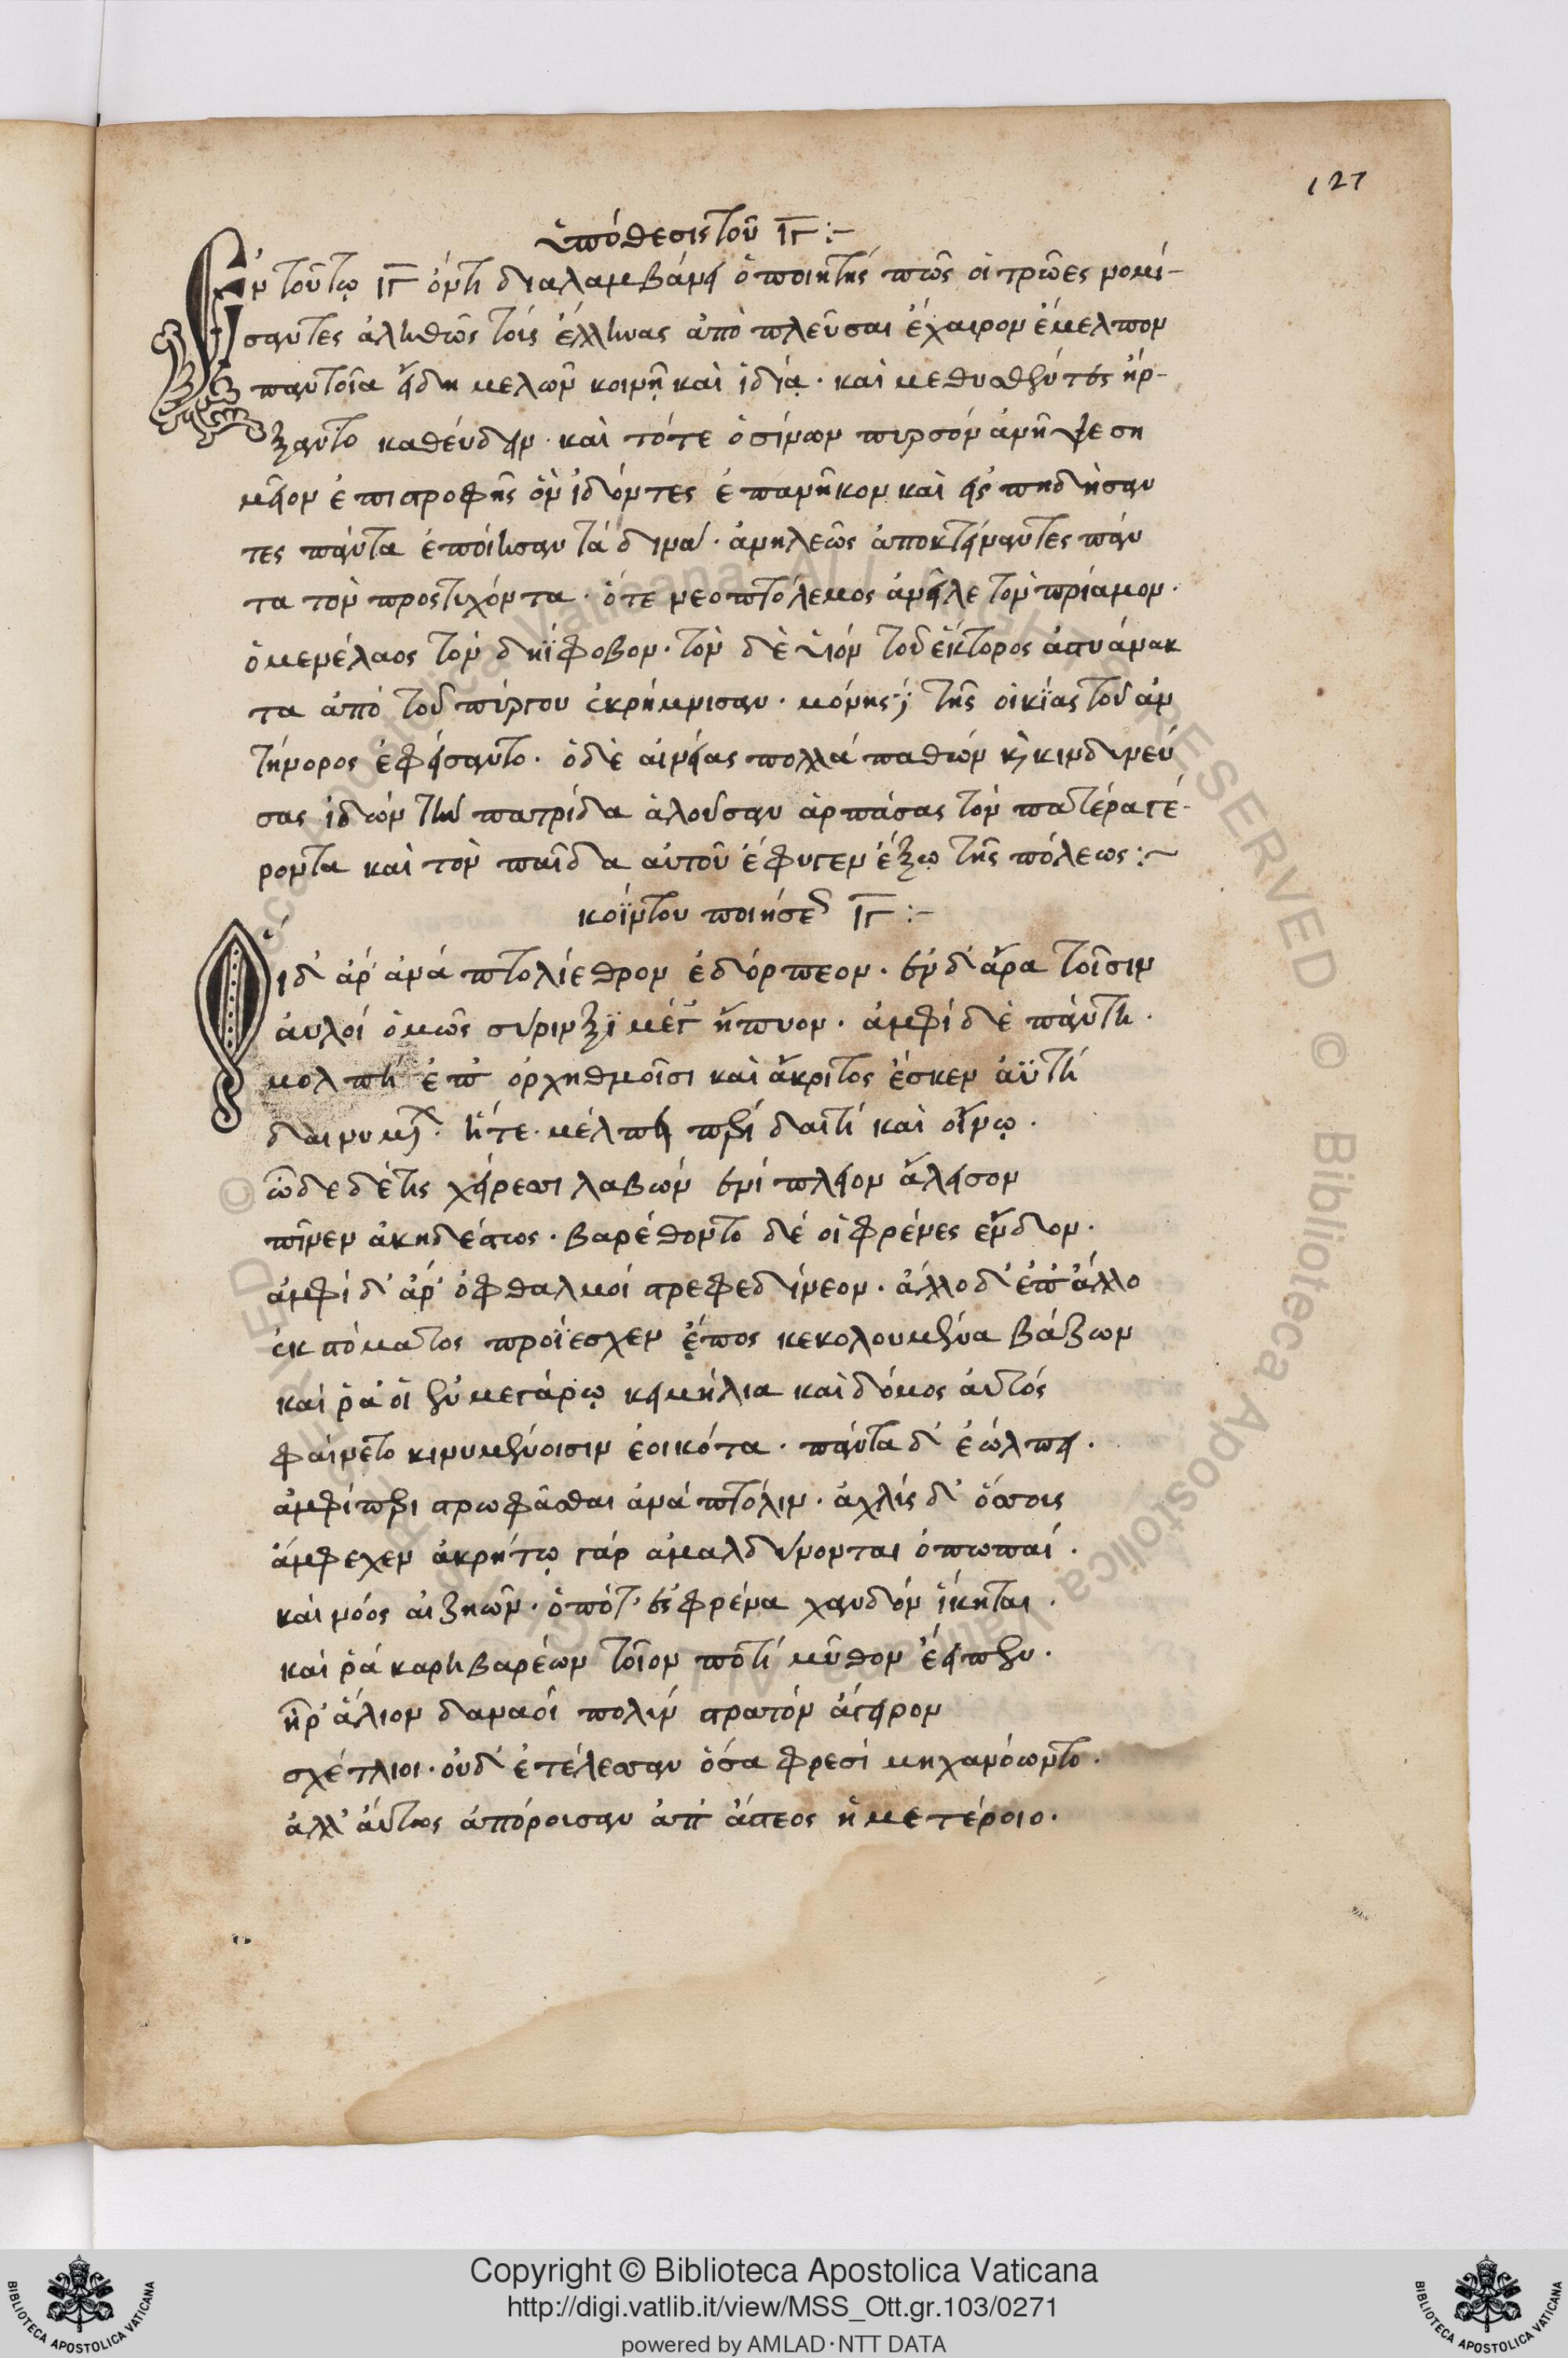 127
ὑπόθεσις τοῦ ιγ :~
Ἐν τούτω ιγ ὄντι διαλαμβάνει ὁ ποιητὴς πῶς οἱ τρῶες νομί-
σαντες ἀληθῶς τοὶς ἕλληνας ἀπὸ πλεῦσαι ἔχαιρον ἔμελπον
παντοῖα εἴδη μελῶν κοινῇ καὶ ἰδίᾳ · καὶ μεθυσθέντες ἤρ-
ξαντο καθεύδειν · καὶ τότε ὁ σίνων πυρσὸν ἀνῆψε ση
μεῖον ἐπιστροφῆς ὃν ἰδόντες ἐπανῆκον καὶ εἰς πηδήσαν
τες πάντα ἐποίησαν τὰ δινά · ἀνηλεῶς ἀποκτείναντες πάν
τα τὸν προς τυχόντα · ὅτε νεοπτόλεμος ἀνεῖλε τὸν πρίαμον ·
ὁ μενέλαος τὸν δηΐφοβον · τὸν δὲ υἱὸν τοῦ ἕκτορος ἀστυάνακ
τα ἀπὸ τοῦ πύργου ἐκρήμνισαν · μόνης τῆς οἰκίας τοῦ ἀν
τήνορος ἐφείσαντο · ὁ δὲ αἰνείας πολλὰ παθὼν κ κινδυνεύ
σας ἰδὼν τὴν πατρίδα ἁλοῦσαν ἁρπάσας τὸν πατέρα γέ-
ροντα καὶ τὸν παῖδα αὐτοῦ ἔφυγεν ἔξω τῆς πόλεως :~
κοΐντου ποιήσε ιγ :~
Οἱ δ' ἀρ' ἀνὰ πτολίεθρον ἐδόρπεον · ἐν δ' ἄρα τοῖσιν
ἀυλοὶ ὁμῶς σύριγξϊ μέγ' ἤπυον · ἀμφὶ δὲ πάντη ·
μολπὴ ἐπ' ὀρχηθμοῖσι καὶ ἄκριτος ἔσκεν ἀϋτὴ
δαινυμ · ἥτε · μέλπει περὶ δαιτὶ καὶ οἴνῳ ·
ὧδε δέ τις χείρεσσι λαβὼν ἐνὶ πλεῖον ἄλεισον
πῖνεν ἀκηδέστως · βαρέθοντο δέ οἱ φρένες ἔνδον ·
ἀμφὶ δ' ἀρ' ὀφθαλμοὶ στρεφεδίνεον · ἄλλο δ' ἐπ' ἄλλο
ἐκ στόματος προΐεσχεν ἔπος κεκολουμένα βάζων
καί ῥά οἱ ἐν μεγάρῳ κειμήλια καὶ δόμος ἀυτός
φαίνετο κινυμένοισιν ἐοικότα · πάντα δ' ἐώλπει ·
ἀμφί περι στρωφᾶσθαι ἀνὰ πτόλιν · ἀχλὺς δ' ὄσσοις
ἄμφεχεν ἀκρήτῳ γὰρ ἀμαλδύνονται ὀπωπαί ·
καὶ νόος αἰζηῶν · ὁπότ' ἐς φρένα χανδὸν ἵκηται ·
καί ῥα καρηβαρέων τοῖον ποτὶ μῦθον ἔειπεν ·
ἦρ' ἅλιον δαναοὶ πολὺν στρατὸν ἄγειρον
σχέτλιοι · οὐδ' ἐτέλεσσαν ὅσα φρεσὶ μηχανόωντο ·
ἀλλ' ἄυτως ἀπόρουσαν ἀπ' ἄστεος ἡμετέροιο ·
Copyright © Biblioteca Apostolica Vaticana
http://digi.vatlib.it/view/MSS_Ott.gr.103/0271
powered by AMLAD·NTT DATA